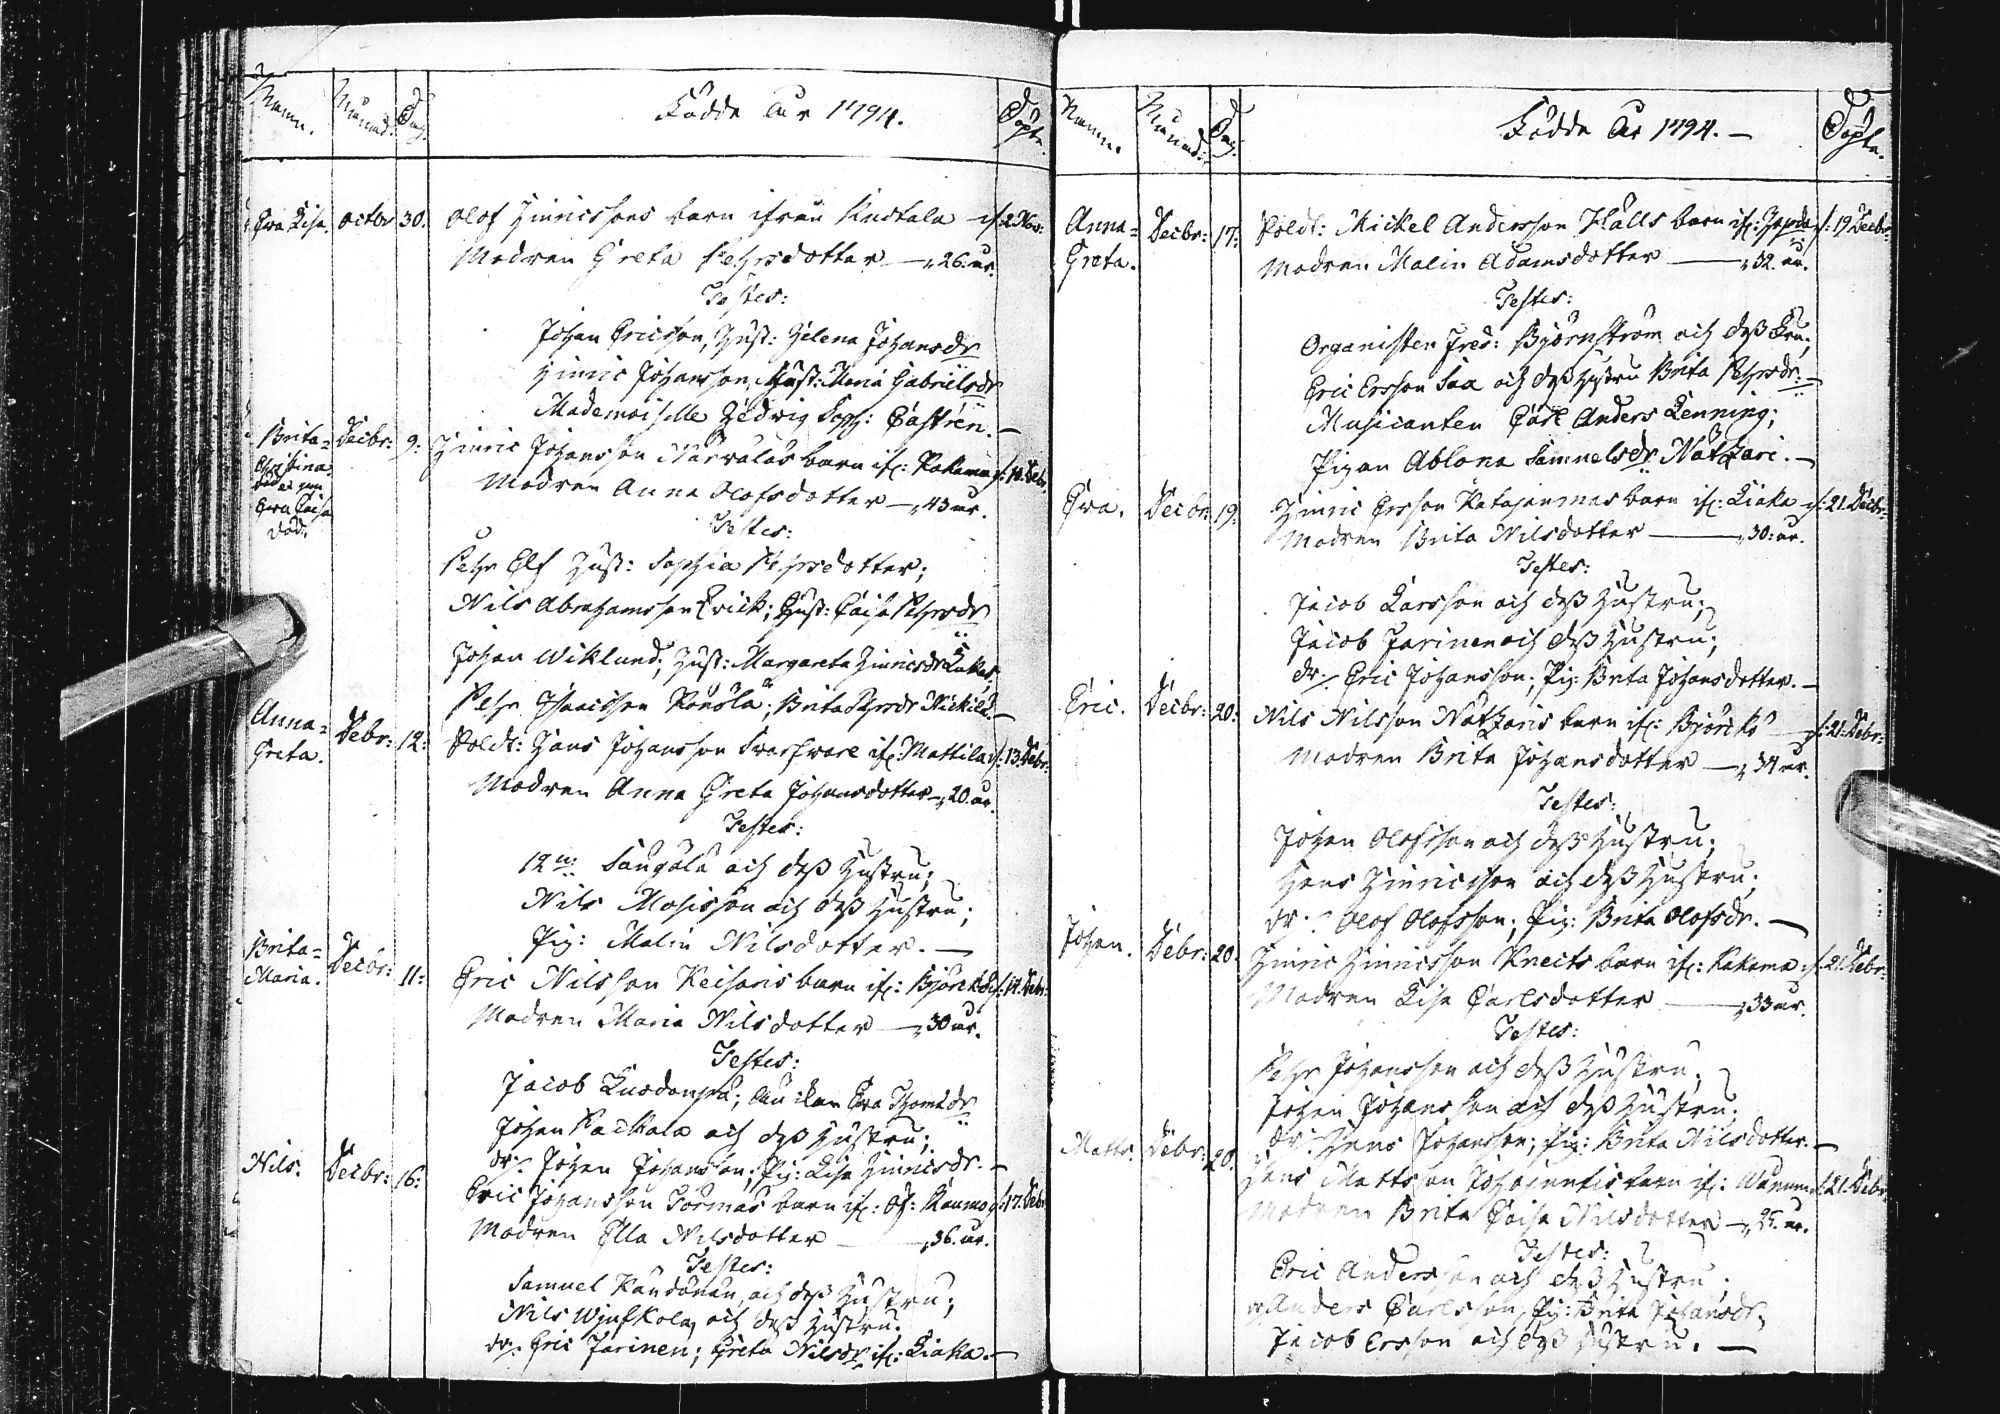 Namn.
Månad:
Dag.
Födde År 1794.
Döpte.
Eva Lisa.
octbr
30.
Olof Hinricssons barn ifrån
d: 2 Nov:
Modren Greta Pehrsdotter — 26. år.
Testes:
Johan Ericsson, Hust: Helena Johansdr
Hinric Johansson, Hust: Maria Gabrielsdr
Mademoiselle Hedvig Soph: Castrén. —
Brita=
Christina
Decbr:
9:
Hinric Johansson barn if: Kakama
d: 10. Decbr.
Modren Anna Olofsdotter — 43 år.
Eva Caisa
död.
Testes:
Pehr Elf Hust: Sophia Pehrsdotter;
Nils Abrahamsson Hust: Caisa Pehrsdr
Johan Wiklund, Hust: Margareta Hinricsdr
Pehr Isaacsson Brita Pehrsdr
Anna=
Greta.
Debr:
12:
Soldt: Hans Johansson if: Mattila
d: 13. Debr:
Modren Anna Greta Johansdotter — 20. år.
Testes:
12 n: och dess Hustru;
Nils Mosisson och dess Hustru;
Pig: Malin Nilsdotter. —
Brita=
Maria.
Decbr:
11:
Eric Nilsson Keisaris barn if: Björckö
d: 14. Debr:
Modren Maria Nilsdotter — 30 år.
Testes:
Jacob Eva Thomasdr
Johan Packala och dess Hustru;
dr: Johan Johansson; Pig: Lisa Hinricsdr. —
Nils.
Decbr:
16:
Eric Johansson Tormas barn if: Öf: Raumo
d: 17. Debr
Modren Ella Nilsdotter — 36. år.
Testes:
Samuel och dess Hustru;
Nils och dess Hustru.
dr: Eric Jarinen; Greta Nilsdr if: Liaka. —
Namn.
Månad:
Dag.
Födde År 1794. —
Döpte.
Anna=
Greta.
Decbr:
17:
Soldt: Mickel Andersson Hålls barn if:
d: 19 Decbr:
Modren Malin Adamsdotter — 32. år.
Testes:
Organisten Fred: Björnström och dess Fru;
Eric Ersson Saa och dess Hustru Brita Pehrsdr: —
Musicanten Carl Anders Lenning;
Pigan Ablona Samuelsdr Nätzari. —
Eva.
Decbr:
19:
Hinric Ersson Katajanmas barn if: Liaka
d: 21. Decbr:
Modren Brita Nilsdotter — 30: år.
Testes:
Jacob Larsson och dess Hustru;
Jacob Jarinen och dess Hustru;
dr: Eric Johansson; Pig: Brita Johansdotter. —
Eric.
Decbr:
20:
Nils Nilsson Nätzaris barn if: Björckö
d: 21. Debr:
Modren Brita Johansdotter — 34 år.
Testes:
Johan Olofsson och dess Hustru;
Hans Hinricsson och dess Hustru;
dr: Olof Olofsson; Pig: Brita Olofsdr. —
Johan.
Debr:
20.
Hinric Hinricsson Knects barn if: Kakama
d: 21. Debr:
Modren Lisa Carlsdotter — 33 år.
Testes:
Pehr Johansson och dess Hustru;
Johan Johansson och dess Hustru;
dr: Hans Johansson; Pig: Brita Nilsdotter. —
Matts.
Debr:
20.
Hans Mattsson barn if:
d: 21. Debr
Modren Brita Caisa Nilsdotter — 25. år.
Testes:
Eric Andersson och dess Hustru;
dr Anders Carlsson, Pig: Brita Johansdr;
Jacob Ersson och dess Hustru. —